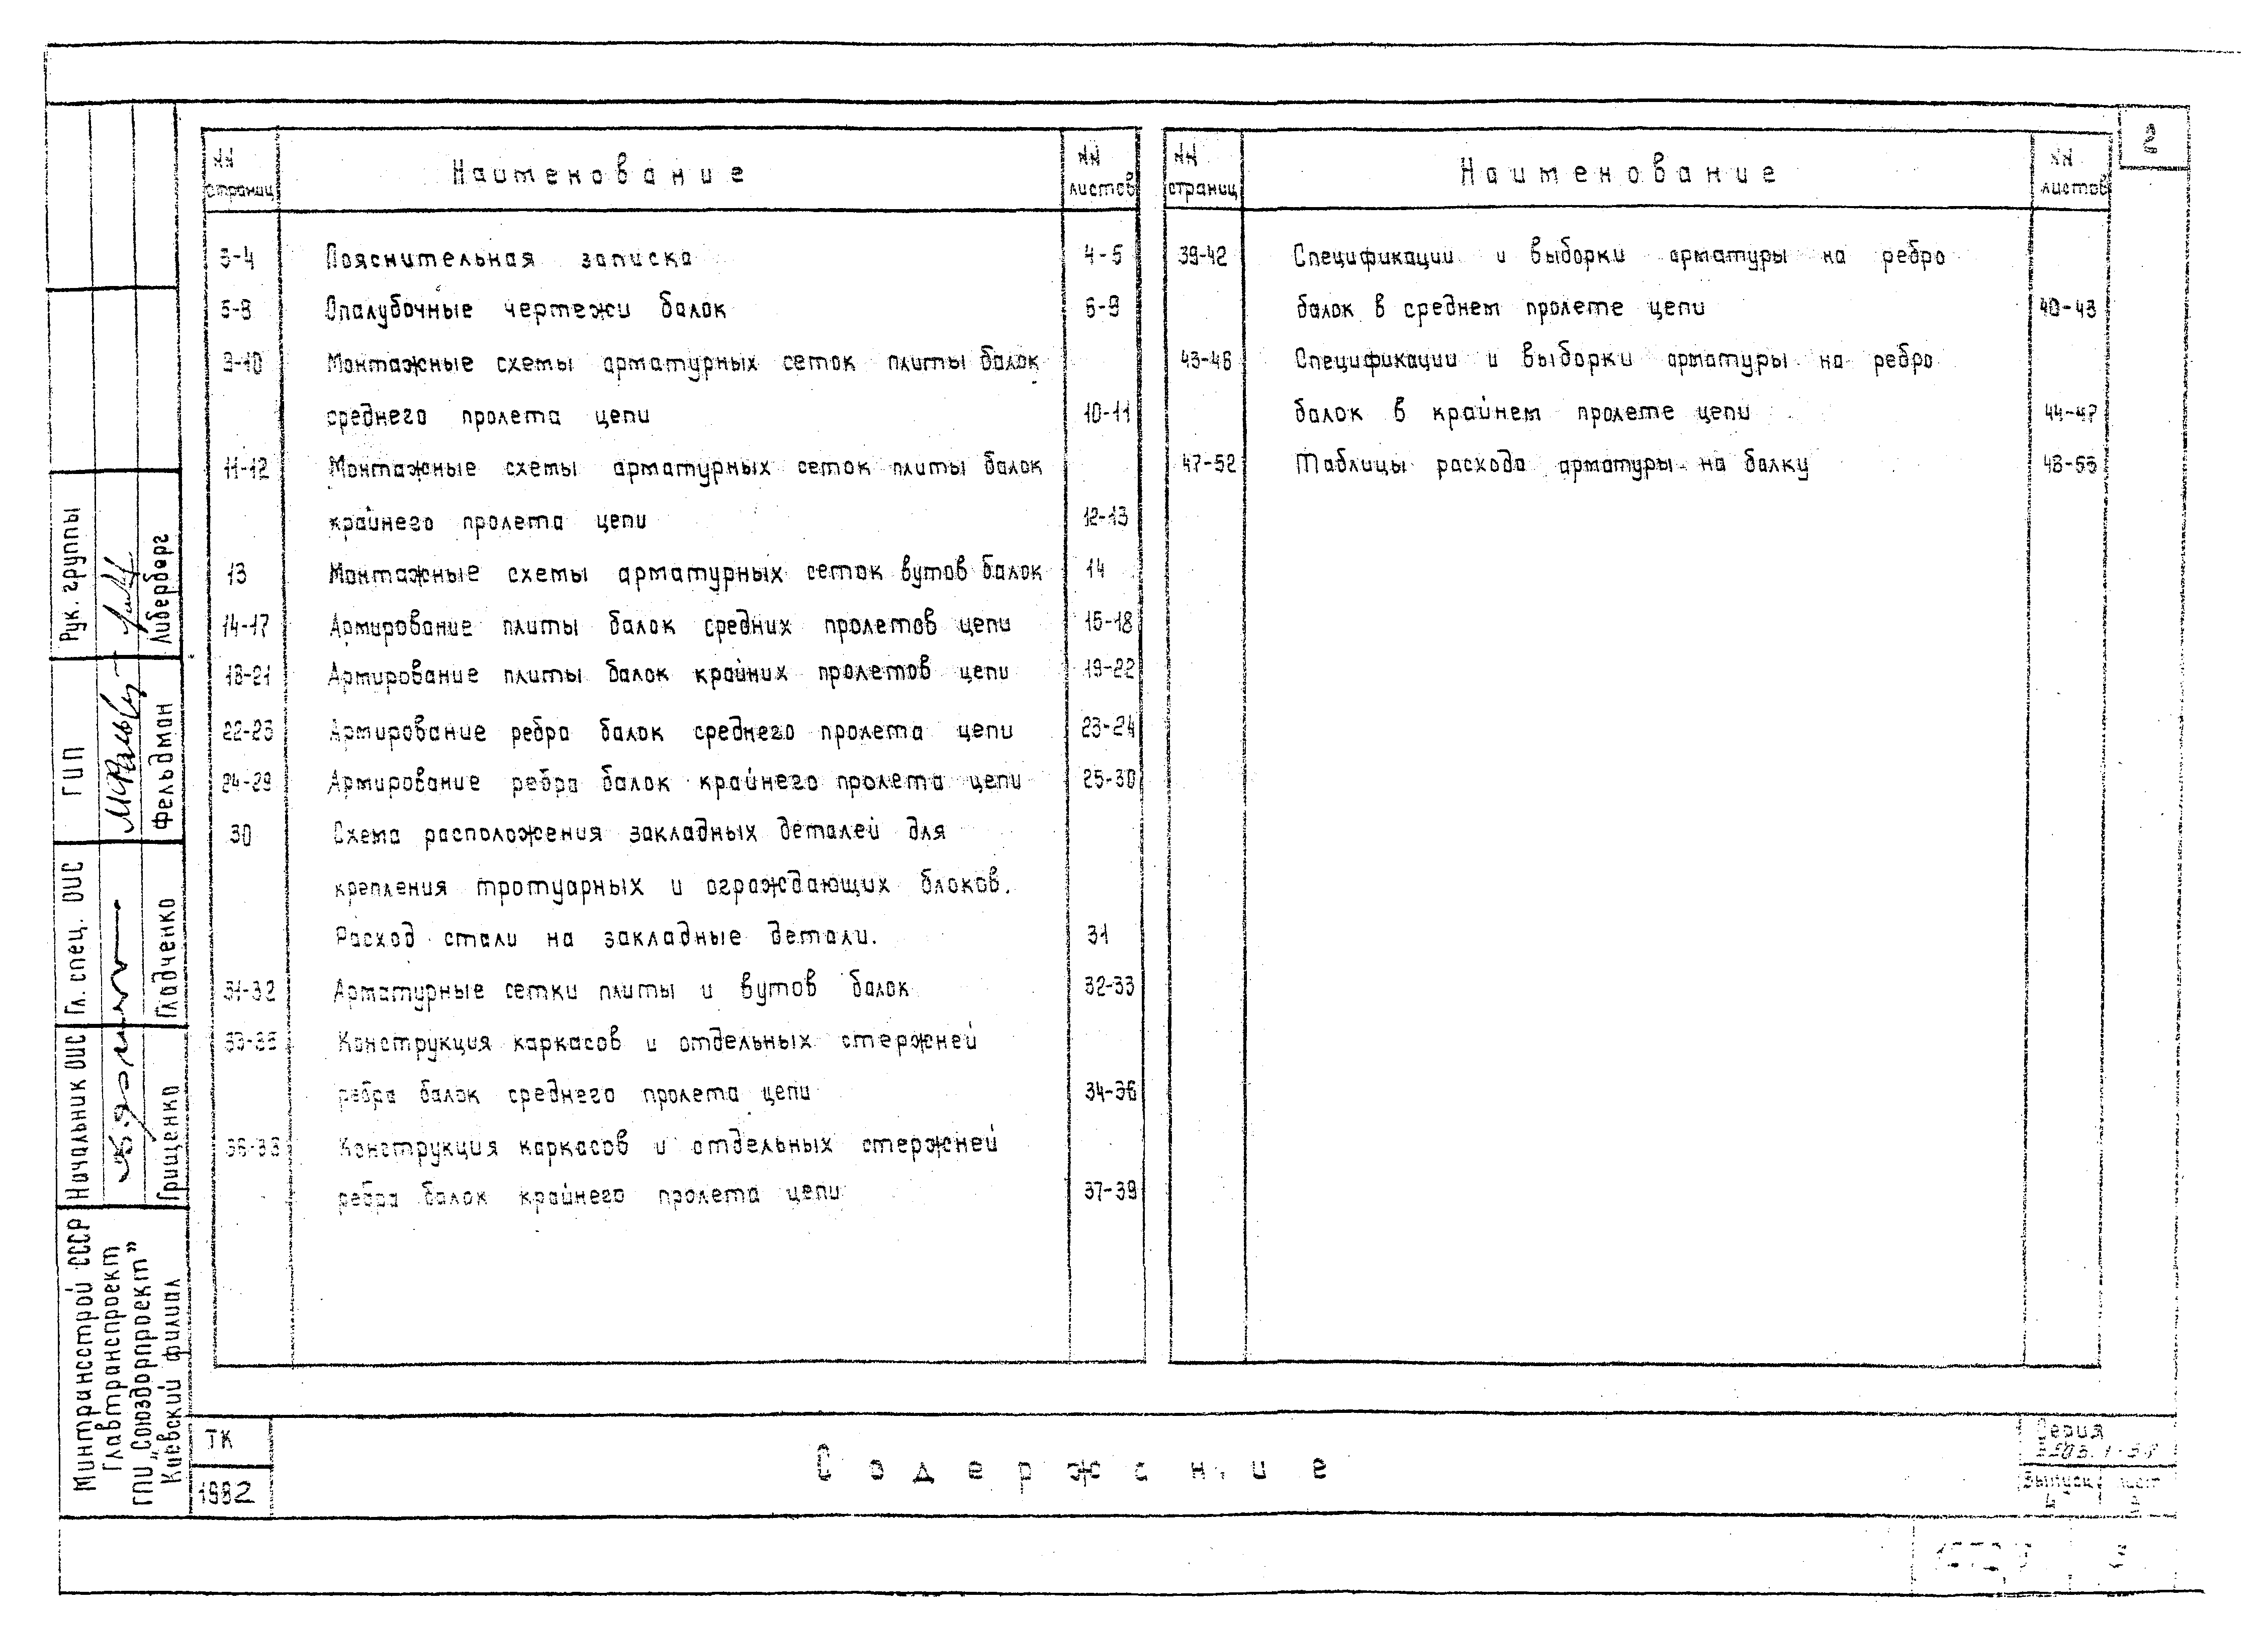 2
NN Наименование NN
страниц листов
3-4 Пояснительная записка 4-5
5-8 Опалубочные чертежи балок 6-9
9-10 Монтажные схемы арматурных сеток плиты балок
среднего пролета цепи 10-11
11-12 Монтажные схемы арматурных сеток плиты балок
крайнего пролета цепи 12-13
13 Монтажные схемы арматурных сеток вутов балок 14
14-17 Армирование плиты балок средних пролетов цепи 15-18
18-21 Армирование плиты балок крайних пролетов цепи 19-22
22-23 Армирование ребра балок среднего пролета цепи 23-24
24-29 Армирование ребра балок крайнего пролета цепи 25-30
30 Схема расположения закладных деталей для
крепления тротуарных и ограждающих блоков.
Расход стали на закладные детали. 31
31-32 Арматурные сетки плиты и вутов балок 32-33
33-35 Конструкция каркасов и отдельных стержней
ребра балок среднего пролета цепи 34-36
36-38 Конструкция каркасов и отдельных стержней
ребра балок крайнего пролета цепи 37-39
NN Наименование NN
страниц листов
39-42 Спецификации и выборки арматуры на ребро
балок в среднем пролете цепи 40-43
43-46 Спецификации и выборки арматуры на ребро
балок в крайнем пролете цепи 44-47
47-52 Таблицы расхода арматуры на балку 48-53
Рук. группы Либерберг
ГИП Фельдман
Гл. спец. ОИС Гладченко
Начальник ОИС Грищенко
Минтрансстрой СССР
Главтранспроект
ГПИ „Союздорпроект"
Киевский филиал
ТК
1982
Содержание
Серия
3.503.1-
Выпуск лист
4 3